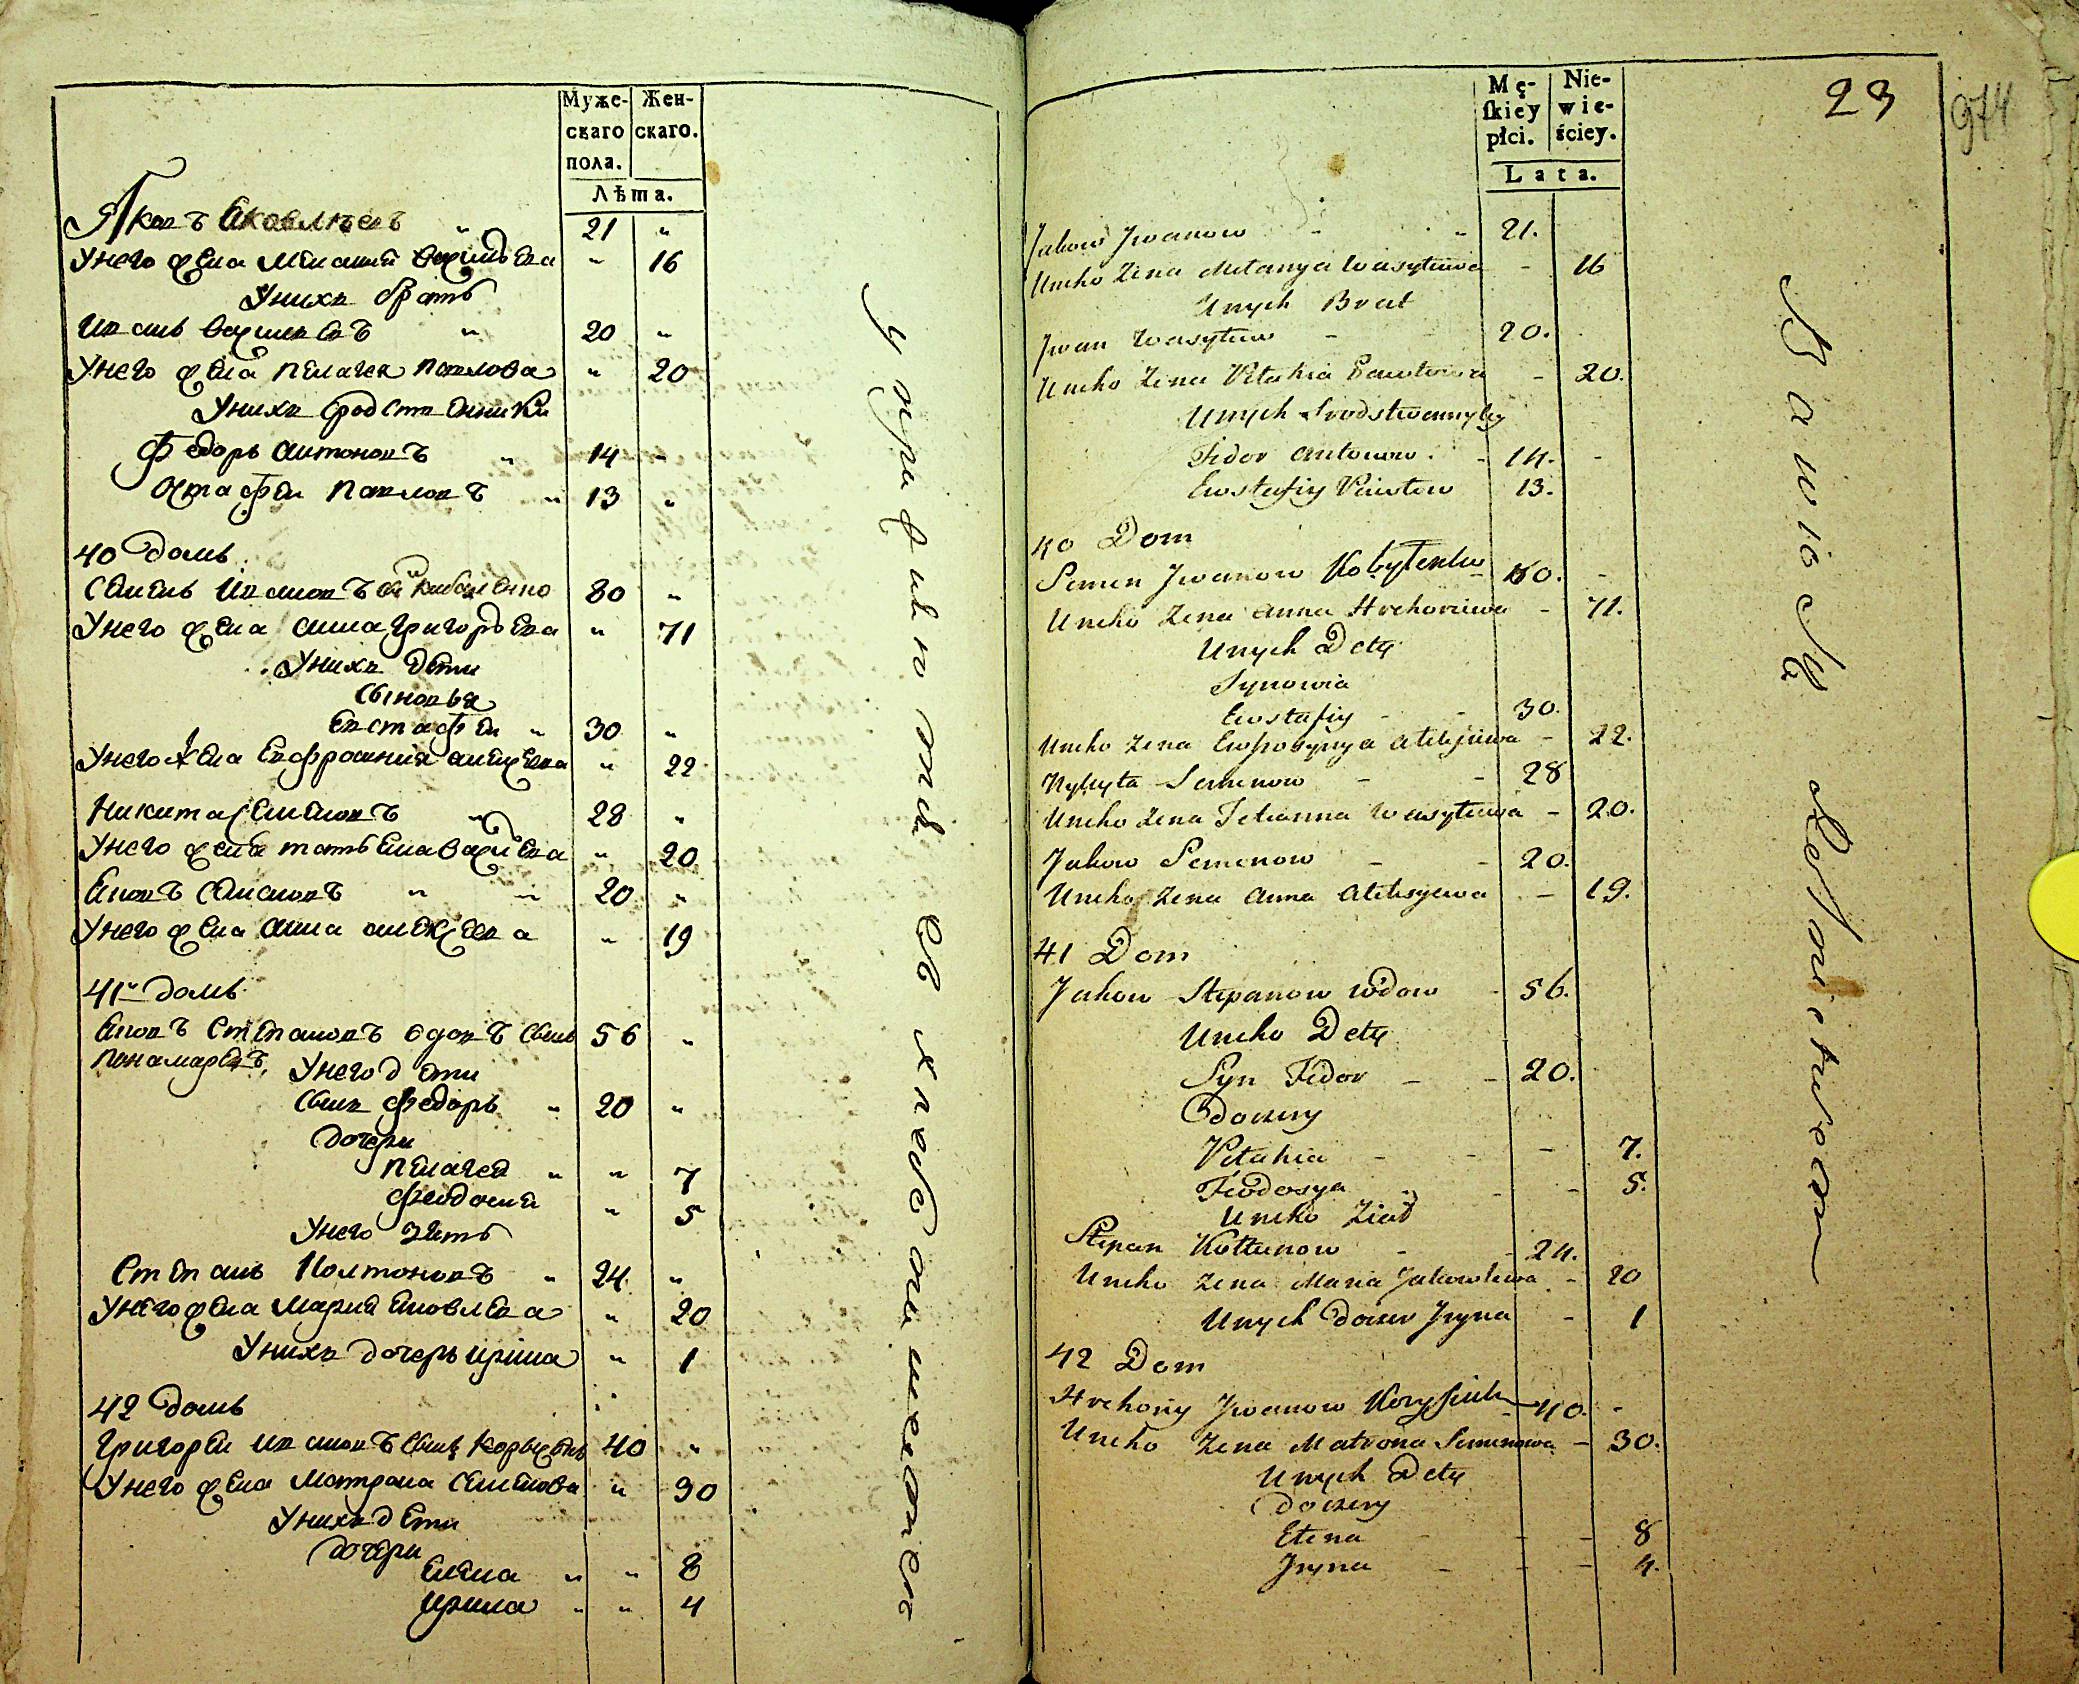 Муже-
скаго
пола.
Жен-
скаго.
Лѣта.
Яковъ Яковлевъ " 21 "
У него жена Мелания Василева " 16
У нихъ братъ
Иванъ Василевъ " 20 "
У него жена Пелагея Павлова " 20
У нихъ сродственники
Федоръ Антоновъ " 14 "
Остафеи Павловъ " 13 "
40 домъ
Семенъ Ивановъ 80 "
У него жена Анна Григорьева " 71
У нихъ дети
Сыновья
Евстафеи " 30 "
У него жена Евфросиния " 22
Никита Семеновъ " 28 "
У него жена Татьяна Василева " 20
Яковъ Семеновъ " " 20 "
У него жена Анна Алексеева " 19
41й домъ
Яковъ Степановъ вдовъ сынъ 56 "
Панамаревъ, У него дети
Сынъ Федоръ " 20 "
Дочери
Пелагея " " 7
Феодосия " 5
У него зять
Степанъ Колтоновъ " 24 "
У него жена Мария Яковлева " 20
У нихъ дочерь Ирина " 1
42 домъ
Григореи Ивановъ сынъ 40 "
У него жена Матрона Семенова " 30
У нихъ дети
Дочери
Елена " " 8
Ирина " " 4
Mę-
skiey
płci.
Nie-
wie-
ściey.
Lata.
23
974
Jakow Jwanow - - 21.
Uneho Zena Melanya Wasylewa - 16
Unych Brat
Jwan Wasylew - 20.
Uneho Zena Pelahia Pawłowa - 20.
Unych Srodstwennyky
Fidor Antonow - 14. -
Ewstafiy Pawłow 13.
40 Dom
Semen Jwanow Kobyłenko - 80. -
Uneho Zena Anna Hrehoriewa - 71.
Unych Dety
Synowia
Ewstafiy - - 30.
Uneho Zena Ewfrosynya - 22.
Nykyta Semenow - - 28
Uneho Zena Tetianna Wasylewa - 20.
Jakow Semenow - - 20.
Uneho Zena Anna Aleksyewa - 19.
41 Dom
Jakow Stepanow Wdow - 56.
Uneho Dety
Syn Fidor - - 20.
Doczery
Pelahia - - - 7.
Feodosya - - - 5.
Uneho Ziat
Stepan Kołtunow - - 24.
Uneho Zena Maria Jakowlewa - 20
Unych Doczer Jryna - 1
42 Dom
Hrehoriy Jwanow - 40. -
Uneho Zena Matrona Semenowa - 30.
Unych Dety
Doczery
Elena - - - 8
Jryna - - - 4.